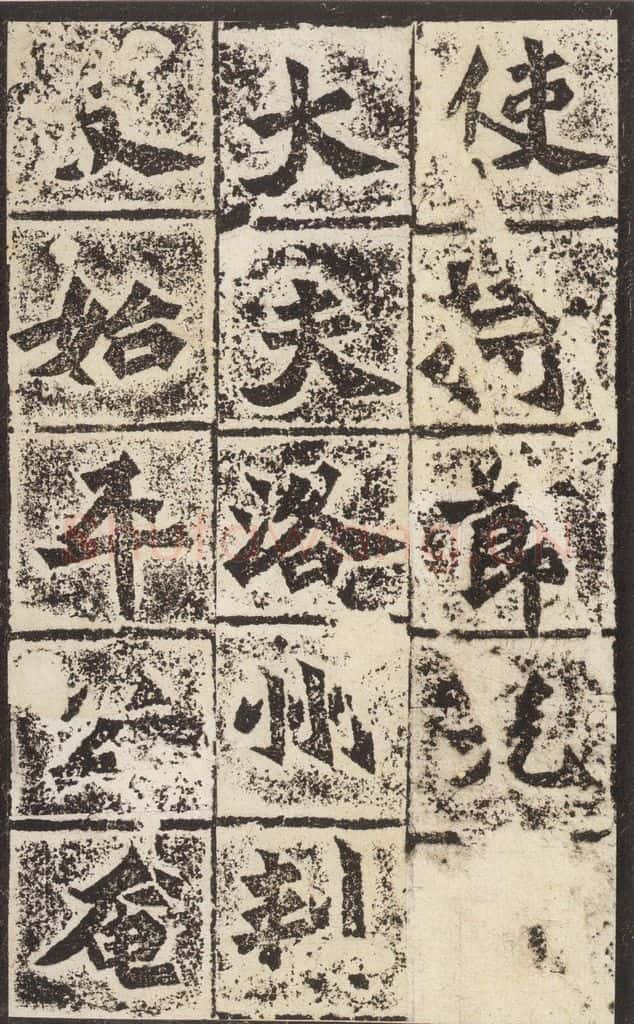 使持節光
大夫洛州刺
史始平公奄
shufawang.CN